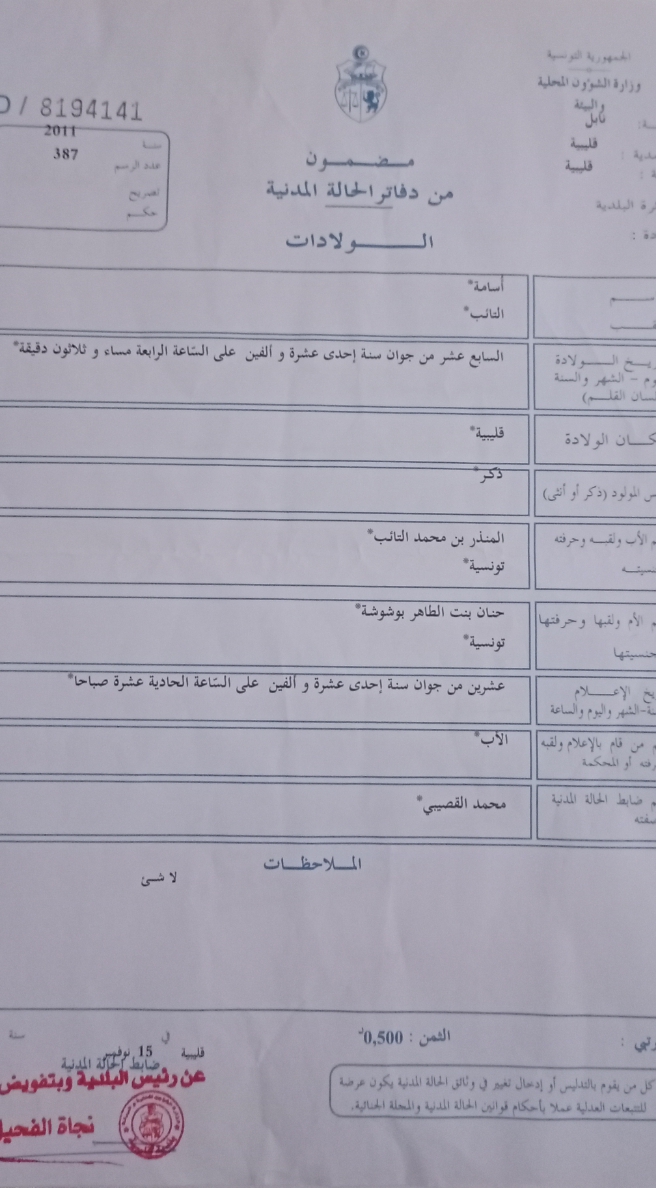 الجمهورية التونسية
وزارة الشؤون المحلية
والبيئة
نابل
قليبية
قليبية
D / 8194141
سنة 2011
عدد الرسم 387
تصريح
حكم
مضمون
من دفاتر الحالة المدنية
الولادات
أسامة*
التائب*
السابع عشر من جوان سنة إحدى عشرة و ألفين على الساعة الرابعة مساء و ثلاثون دقيقة*
الولادة
الشهر والسنة
القلم)
قليبية*
الولادة
ذكر*
المولود (ذكر أو أنثى)
المنذر بن محمد التائب*
الأب ولقبه وحرفته
تونسية*
حنان بنت الطاهر بوشوشة*
الأم ولقبها وحرفتها
تونسية*
جنسيتها
عشرين من جوان سنة إحدى عشرة و ألفين على الساعة الحادية عشرة صباحا*
الإعلام
الشهر واليوم والساعة
الأب*
من قام بالإعلام ولقبه
أو المحكمة
محمد القصيبي*
ضابط الحالة المدنية
الملاحظات
لا شئ
الثمن : 0,500
قليبية في 15 نوفمبر سنة
ضابط الحالة المدنية
عن رئيس البلدية وبتفويض
نجاة
كل من يقوم بالتدليس أو إدخال تغيير في وثائق الحالة المدنية يكون عرضة
للتتبعات العدلية عملا بأحكام قوانين الحالة المدنية والمجلة الجنائية.